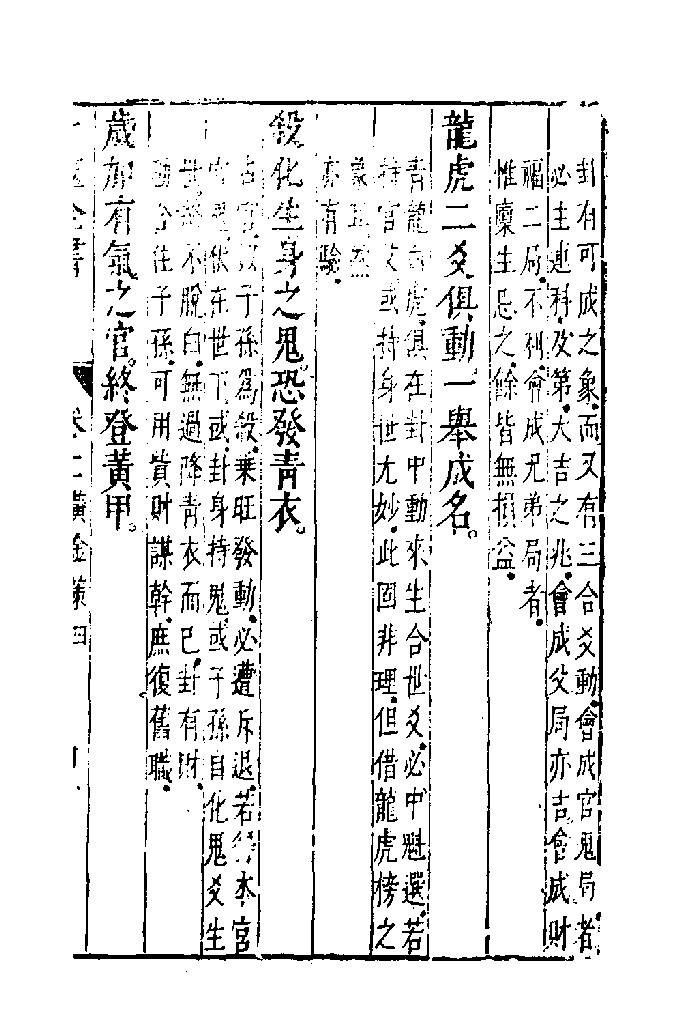 卦有可成之象而又有三合爻動會成官鬼局者
必主連科及第大吉之兆會成父局亦吉會成財
福二局不利會成兄弟局者
惟廩生忌之餘皆無損益
龍虎二爻俱動一舉成名
青龍白虎俱在卦中動來生合世爻必中魁選若
持官父或持身世尤妙此固非理但借龍虎榜之
象耳然
亦有驗
殺化生身之鬼恐發青衣
占官以子孫為殺乗旺發動必遭斥退若得本宮
官鬼伏在世下或卦身持鬼或子孫自化鬼爻生
世終不脫白無過降青衣而已卦有財
動合住子孫可用貲財謀幹庶復舊職
歲加有氣之官終登黃甲
卜筮全書
卷二黃金策四